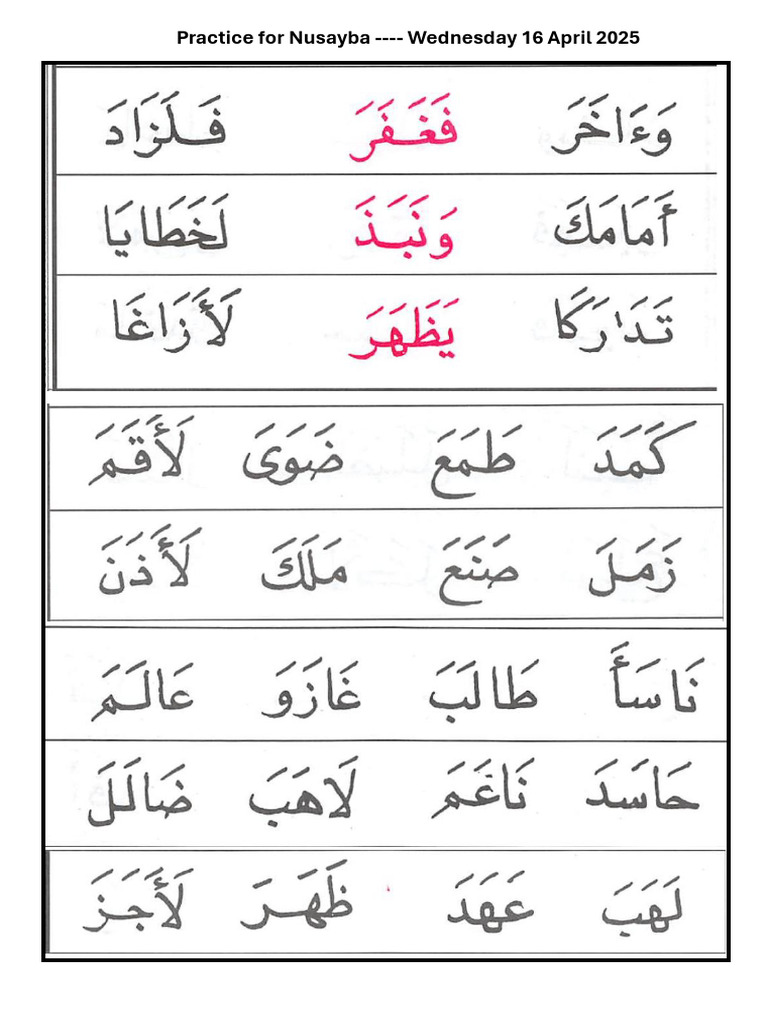 Practice for Nusayba ---- Wednesday 16 April 2025
وَءَاخَرَ فَغَفَرَ فَلَزَادَ
أَمَامَكَ وَنَبَذَ لَخَطَايَا
تَدَارَكَا يَظَهَرَ لَأَزَاغَا
كَمَدَ طَمَعَ ضَوَىَ لَأَقَمَ
زَمَلَ صَنَعَ مَلَكَ لَأَذَنَ
نَاسَأَ طَالَبَ غَازَوَ عَالَمَ
حَاسَدَ نَاغَمَ لَاهَبَ ضَالَلَ
لَهَبَ عَهَدَ ظَهَرَ لَأَجَزَ